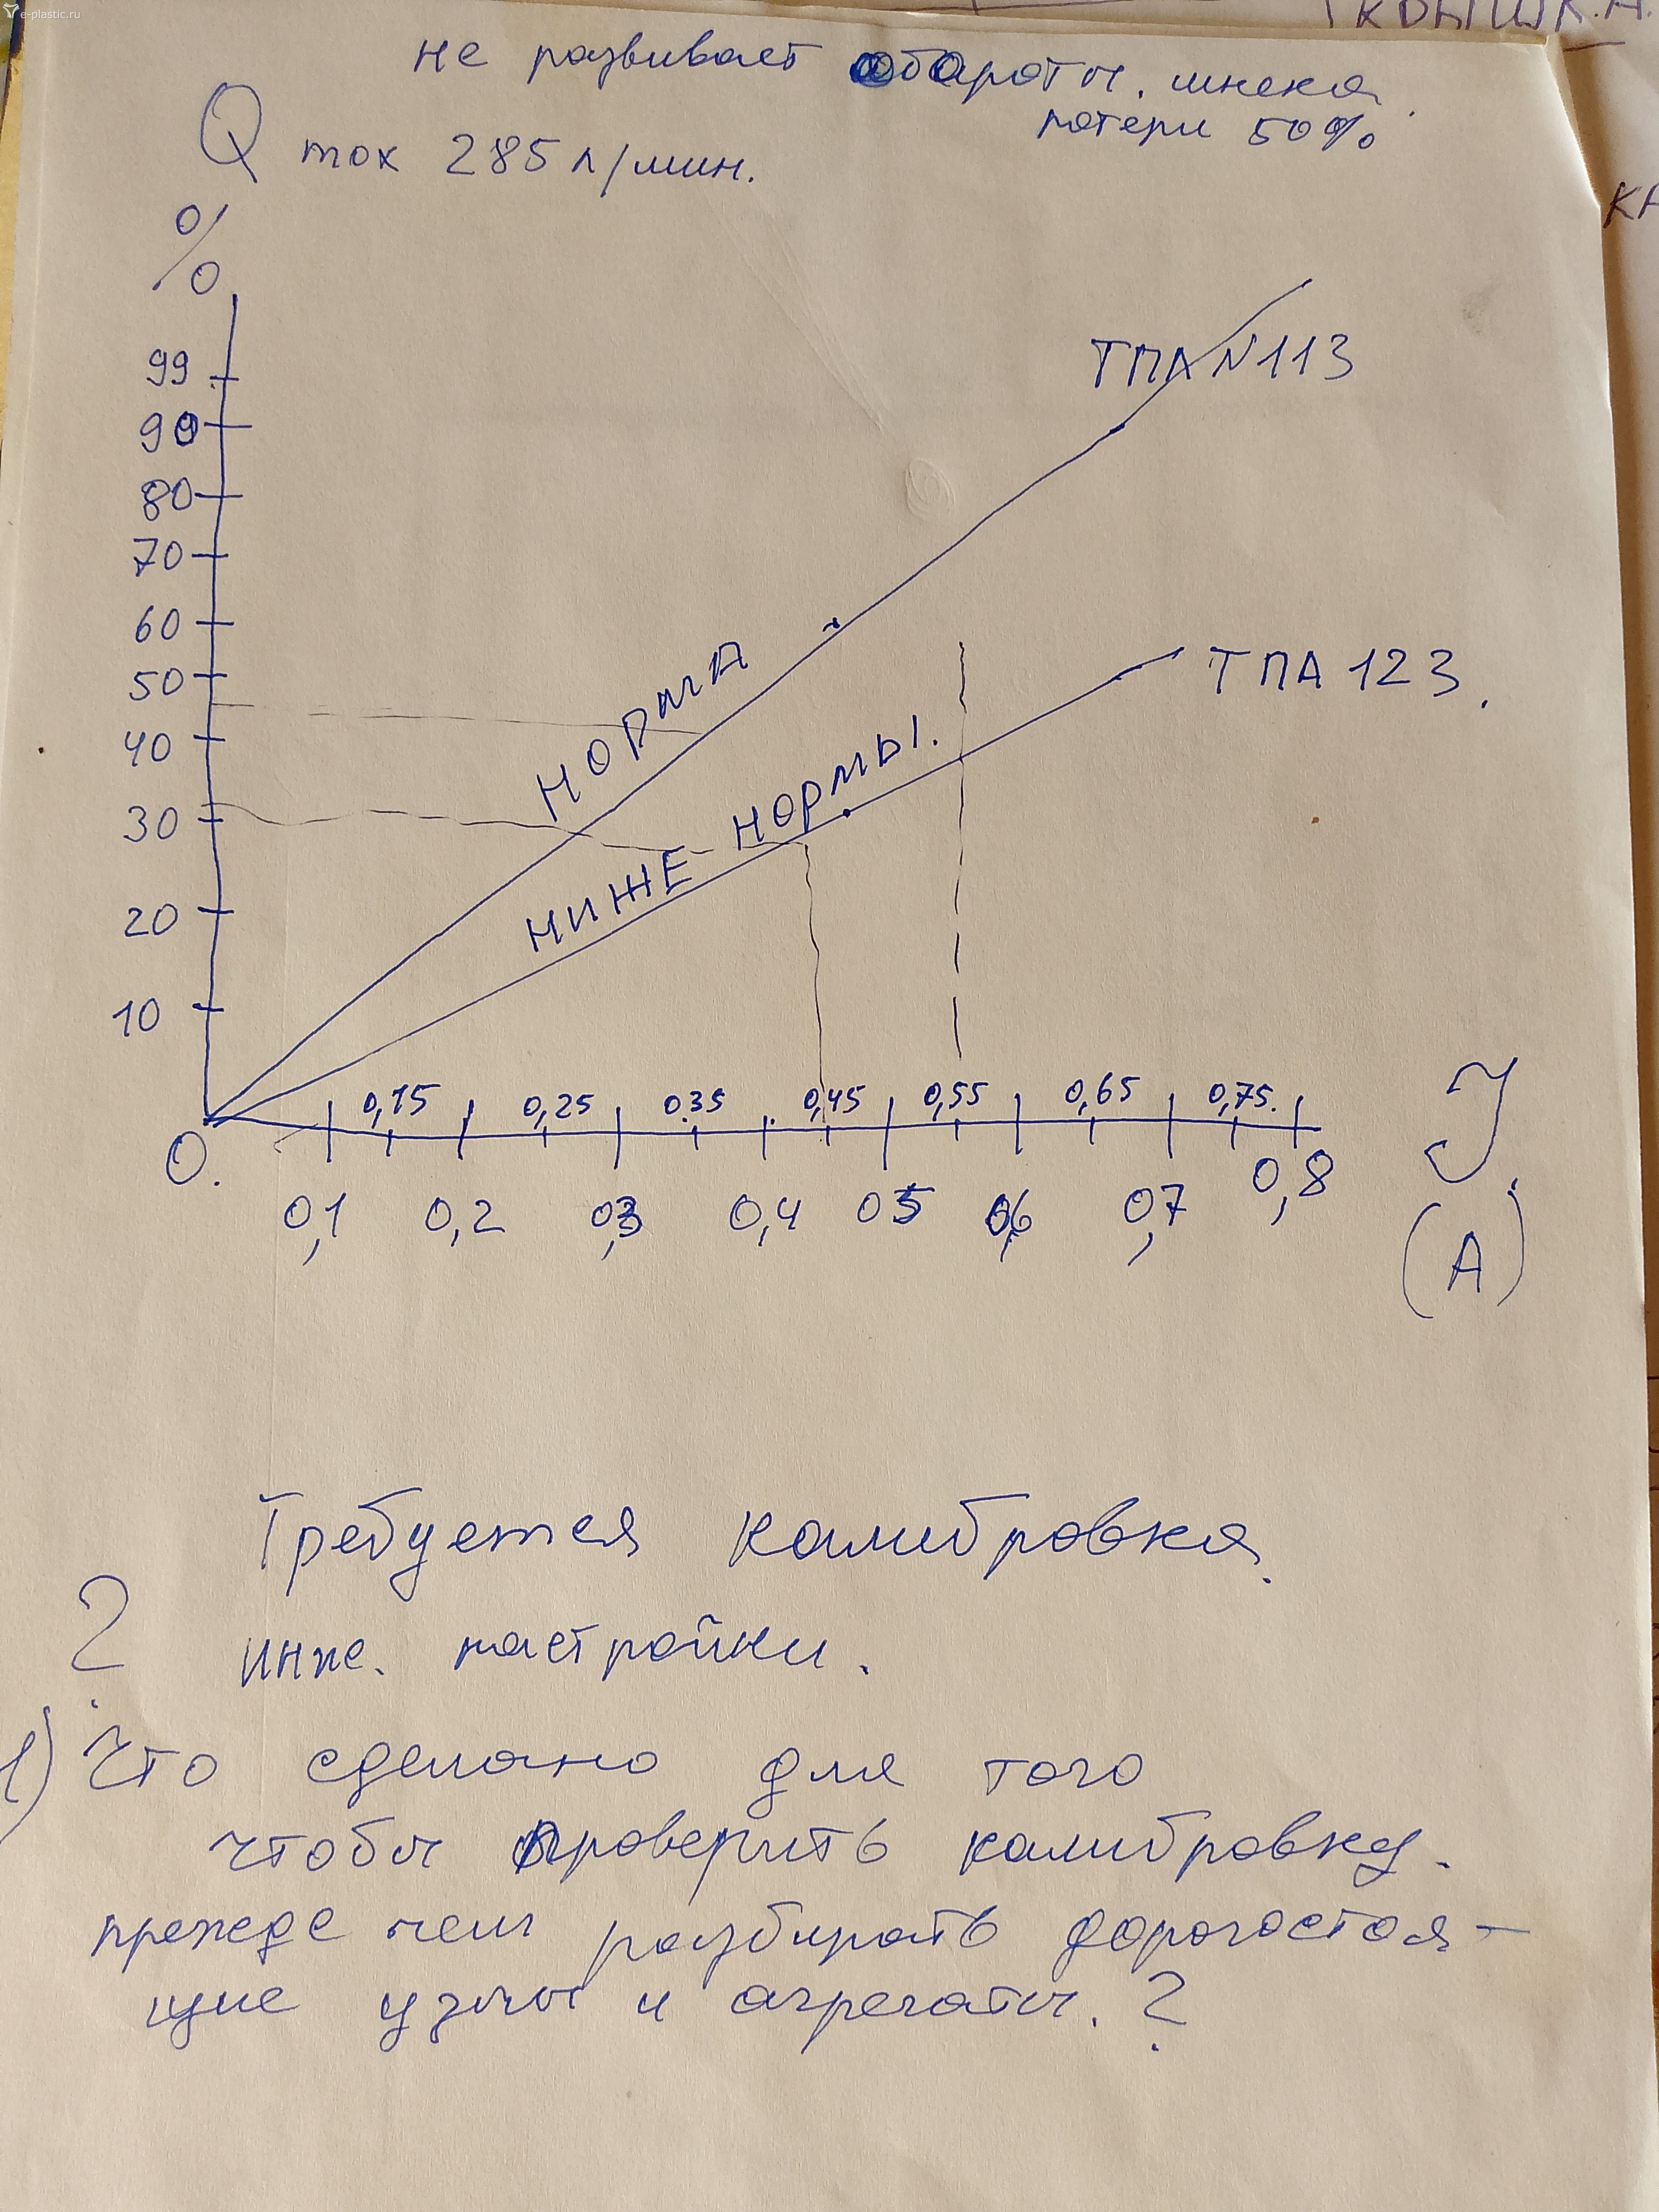 e-plastic.ru
КРЫШК.А.
не развивает обороты. шнека.
потери 50%
Q max 285 л/мин.
КА
%
99
90
80
70
60
50
40
30
20
10
0.
ТПА N113
НОРМА
ТПА 123.
НИЖЕ НОРМЫ.
0,15 0,25 0.35 0,45 0,55 0,65 0,75.
0,1 0,2 0,3 0,4 05 0,6 0,7 0,8
J.
(А)
Требуется калибровка.
? инже. настройки.
1) Что сделано для того
чтобы проверить калибровку.
прежде чем разбирать дорогостоя-
щие узлы и агрегаты. ?